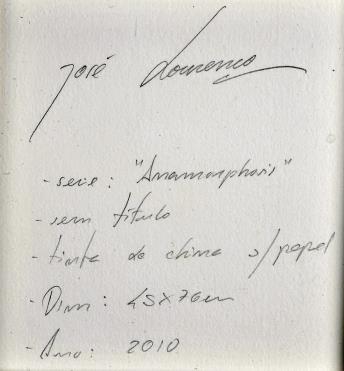 José Lourenço
- serie: "Anamorphosis"
- sem título
- tinta da china s/papel
- Dim: 45x76cm
- Ano: 2010